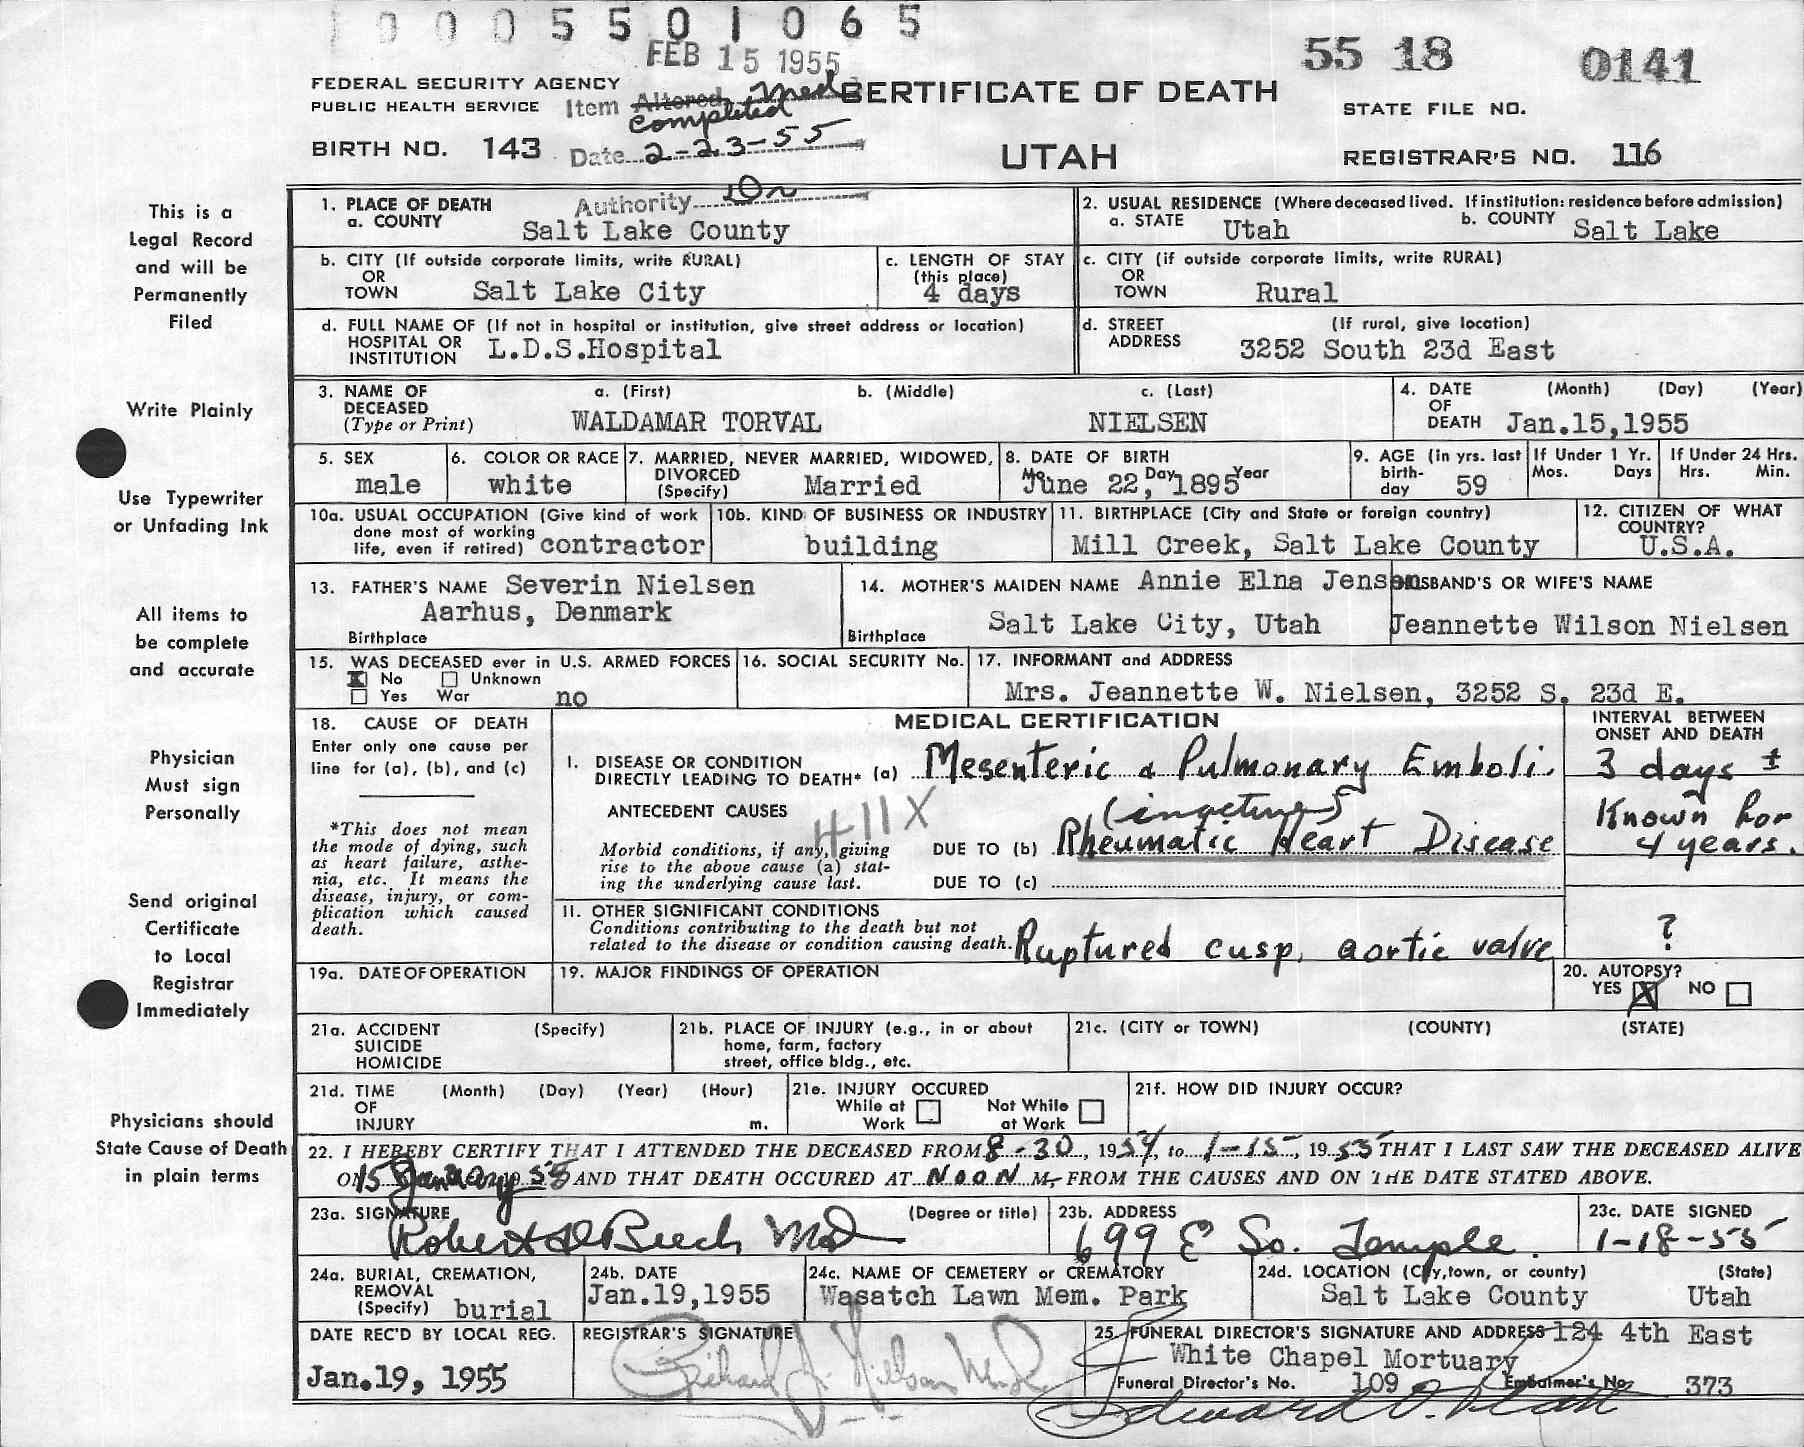 1 0 0 0 5 5 0 1 0 6 5
FEB 15 1955
55 18 0141
FEDERAL SECURITY AGENCY
PUBLIC HEALTH SERVICE
Item Altered Med
completed
CERTIFICATE OF DEATH
STATE FILE NO.
BIRTH NO. 143
Date 2-23-55
UTAH
REGISTRAR'S NO. 116
Authority
This is a
Legal Record
and will be
Permanently
Filed
Write Plainly
Use Typewriter
or Unfading Ink
All items to
be complete
and accurate
Physician
Must sign
Personally
Send original
Certificate
to Local
Registrar
Immediately
Physicians should
State Cause of Death
in plain terms
1. PLACE OF DEATH
a. COUNTY Salt Lake County
2. USUAL RESIDENCE (Where deceased lived. If institution: residence before admission)
a. STATE Utah b. COUNTY Salt Lake
b. CITY (If outside corporate limits, write RURAL)
OR
TOWN Salt Lake City
c. LENGTH OF STAY
(this place)
4 days
c. CITY (if outside corporate limits, write RURAL)
OR
TOWN Rural
d. FULL NAME OF (If not in hospital or institution, give street address or location)
HOSPITAL OR
INSTITUTION L.D.S.Hospital
d. STREET (If rural, give location)
ADDRESS 3252 South 23d East
3. NAME OF a. (First) b. (Middle) c. (Last)
DECEASED
(Type or Print) WALDAMAR TORVAL NIELSEN
4. DATE (Month) (Day) (Year)
OF
DEATH Jan.15,1955
5. SEX
male
6. COLOR OR RACE
white
7. MARRIED, NEVER MARRIED, WIDOWED,
DIVORCED
(Specify) Married
8. DATE OF BIRTH
Mo. Day Year
June 22, 1895
9. AGE (in yrs. last
birth-
day 59
If Under 1 Yr.
Mos. Days
If Under 24 Hrs.
Hrs. Min.
10a. USUAL OCCUPATION (Give kind of work
done most of working
life, even if retired) contractor
10b. KIND OF BUSINESS OR INDUSTRY
building
11. BIRTHPLACE (City and State or foreign country)
Mill Creek, Salt Lake County
12. CITIZEN OF WHAT
COUNTRY?
U.S.A.
13. FATHER'S NAME Severin Nielsen
Aarhus, Denmark
Birthplace
14. MOTHER'S MAIDEN NAME Annie Elna Jensen
Salt Lake City, Utah
Birthplace
HUSBAND'S OR WIFE'S NAME
Jeannette Wilson Nielsen
15. WAS DECEASED ever in U.S. ARMED FORCES
No Unknown
Yes War no
16. SOCIAL SECURITY No.
17. INFORMANT and ADDRESS
Mrs. Jeannette W. Nielsen, 3252 S. 23d E.
18. CAUSE OF DEATH
Enter only one cause per
line for (a), (b), and (c)
*This does not mean
the mode of dying, such
as heart failure, asthe-
nia, etc. It means the
disease, injury, or com-
plication which caused
death.
MEDICAL CERTIFICATION
INTERVAL BETWEEN
ONSET AND DEATH
I. DISEASE OR CONDITION
DIRECTLY LEADING TO DEATH* (a) Mesenteric & Pulmonary Emboli. 3 days ±
ANTECEDENT CAUSES
411X
Morbid conditions, if any, giving
rise to the above cause (a) stat-
ing the underlying cause last.
DUE TO (b) Rheumatic Heart Disease
Known for
4 years.
DUE TO (c)
II. OTHER SIGNIFICANT CONDITIONS
Conditions contributing to the death but not
related to the disease or condition causing death. Ruptured cusp, aortic valve ?
19a. DATE OF OPERATION
19. MAJOR FINDINGS OF OPERATION
20. AUTOPSY?
YES X NO
21a. ACCIDENT (Specify)
SUICIDE
HOMICIDE
21b. PLACE OF INJURY (e.g., in or about
home, farm, factory
street, office bldg., etc.
21c. (CITY or TOWN) (COUNTY) (STATE)
21d. TIME (Month) (Day) (Year) (Hour)
OF
INJURY m.
21e. INJURY OCCURED
While at Work
Not While at Work
21f. HOW DID INJURY OCCUR?
22. I HEREBY CERTIFY THAT I ATTENDED THE DECEASED FROM 8-30, 1954, to 1-15, 1955 THAT I LAST SAW THE DECEASED ALIVE
ON 15 January 1955 AND THAT DEATH OCCURED AT NOON M, FROM THE CAUSES AND ON THE DATE STATED ABOVE.
23a. SIGNATURE (Degree or title)
Robert D Beech MD
23b. ADDRESS
699 E So. Temple.
23c. DATE SIGNED
1-18-55
24a. BURIAL, CREMATION,
REMOVAL
(Specify) burial
24b. DATE
Jan.19,1955
24c. NAME OF CEMETERY or CREMATORY
Wasatch Lawn Mem. Park
24d. LOCATION (City, town, or county) (State)
Salt Lake County Utah
DATE REC'D BY LOCAL REG.
Jan.19, 1955
REGISTRAR'S SIGNATURE
Richard J. Nielson
25. FUNERAL DIRECTOR'S SIGNATURE AND ADDRESS 124 4th East
White Chapel Mortuary
Funeral Director's No. 109 Embalmer's No. 373
Edward O.